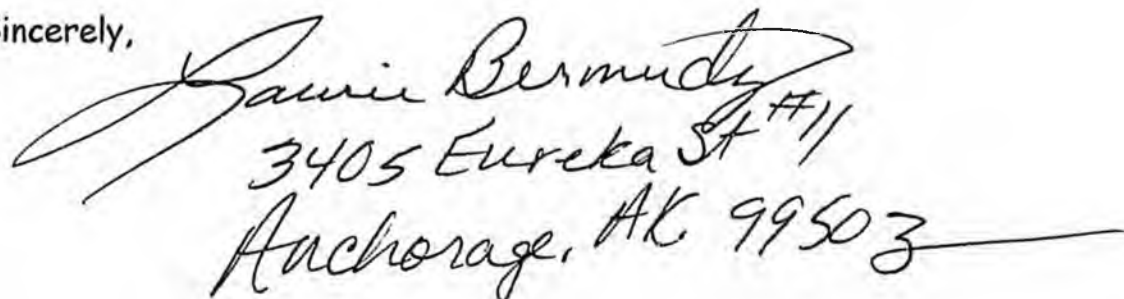 incerely,
Laurie Bermudez
3405 Eureka St #11
Anchorage, AK 99503